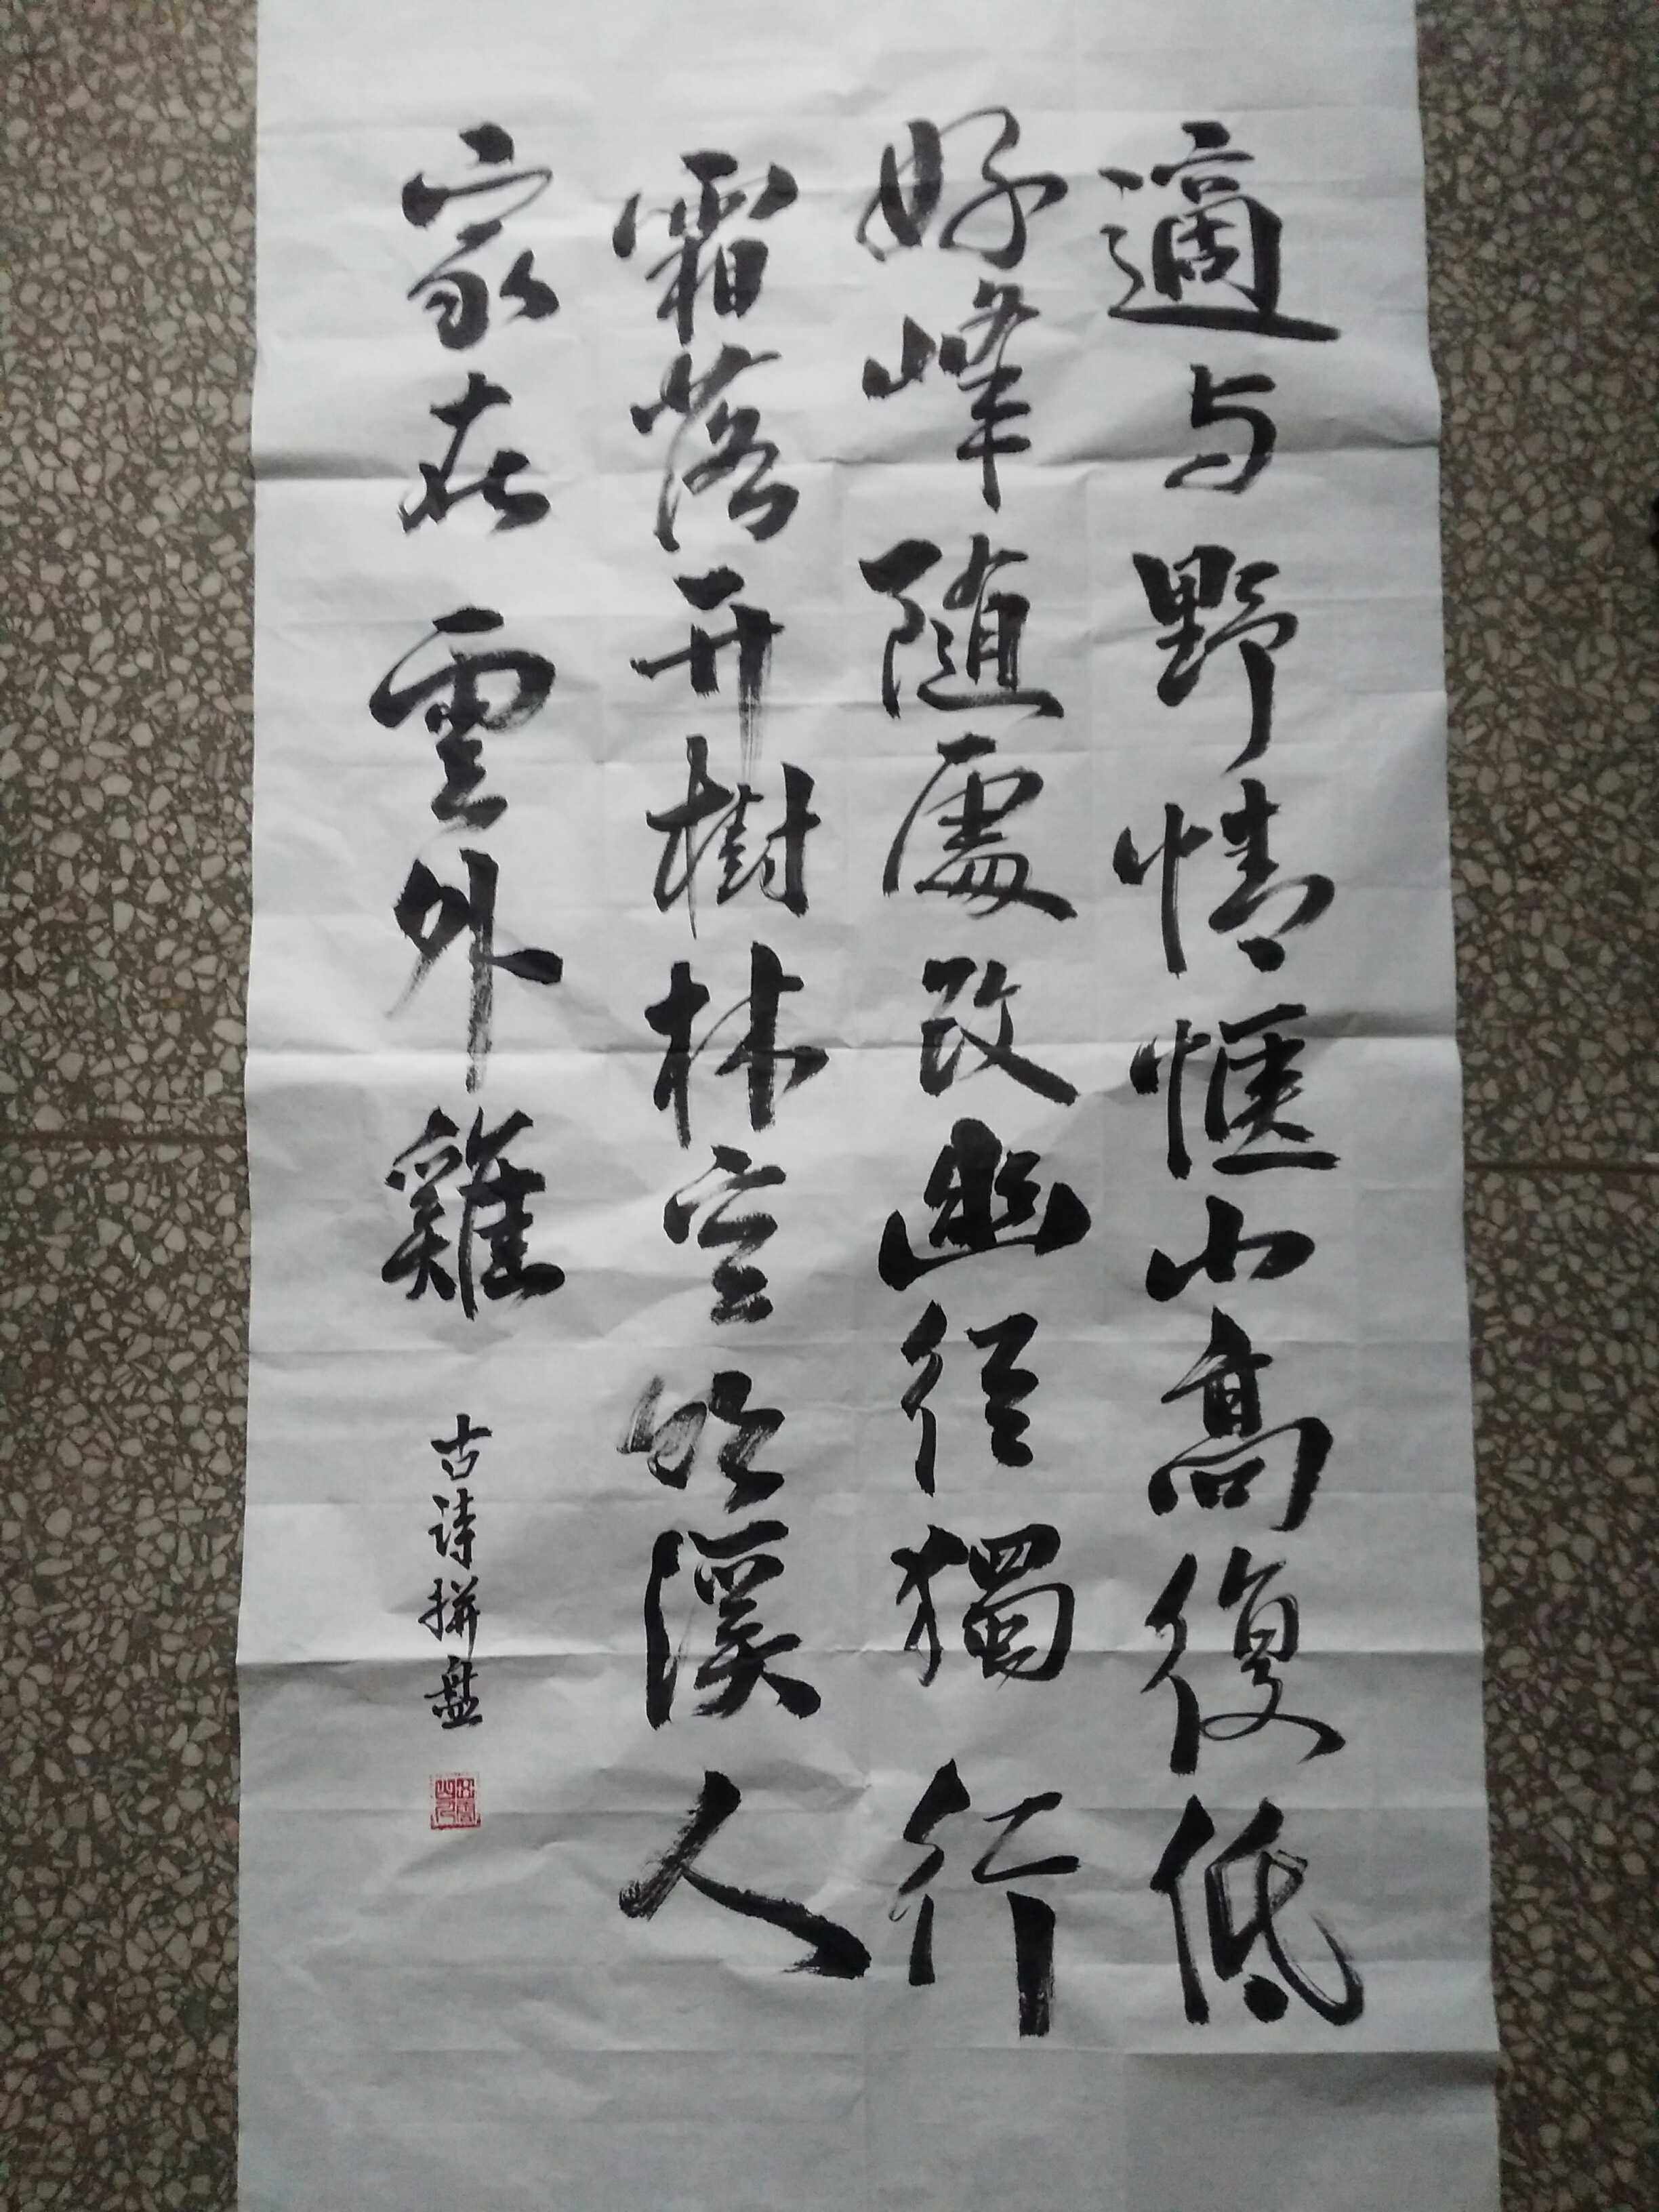 適与野情愜山高復低
好峰随處改幽径獨行
霜落升樹林空飲溪人
家在雲外雞
古诗拼盘